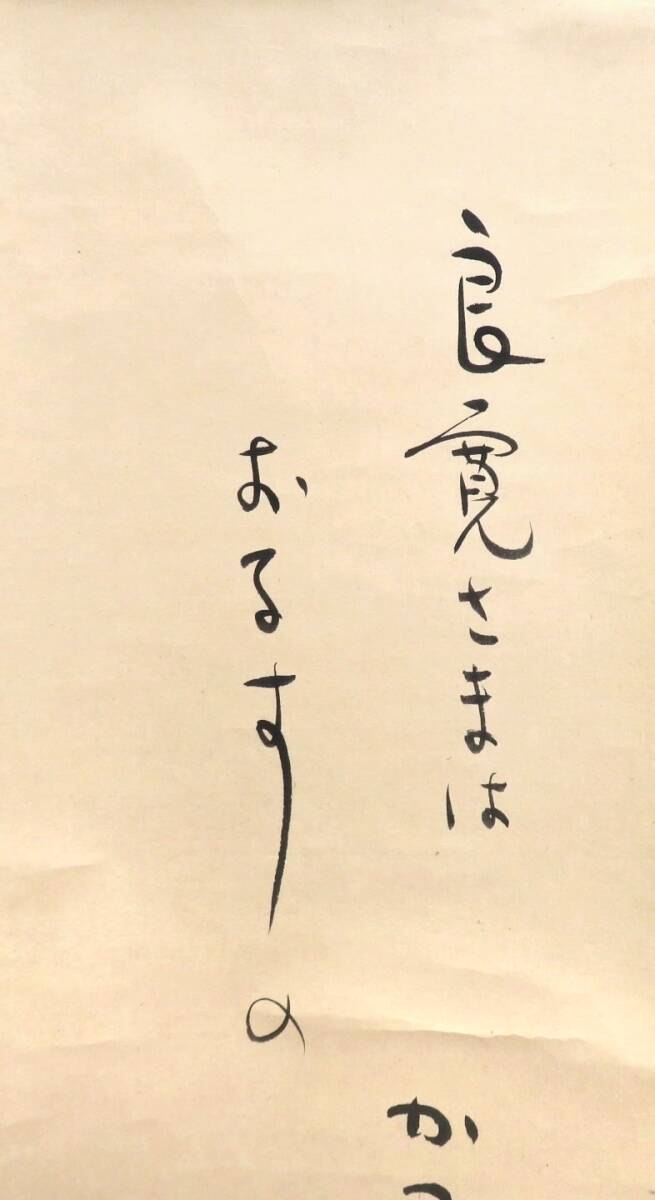 良寛さまは
おるすの
か